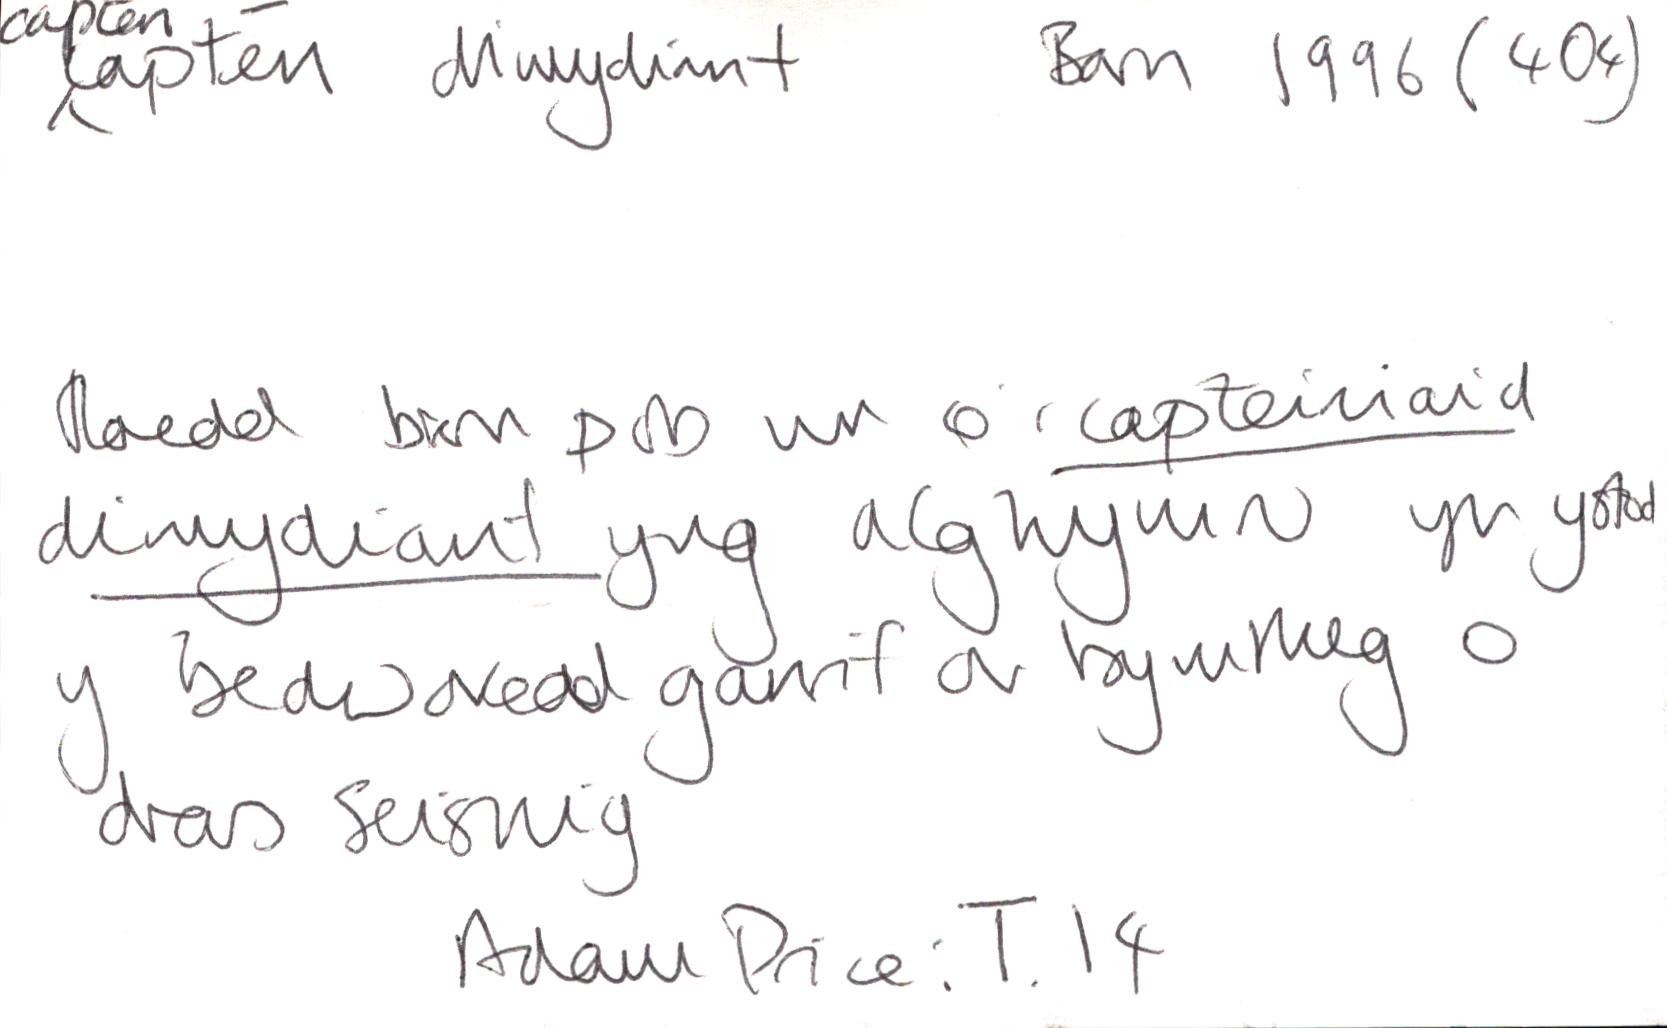 capten
capten diwydiant Barn 1996 (404)
Roedd bron pob un o'r capteiniaid
diwydiant yng Nghymru yn ystod
y bedwaredd ganrif ar bymtheg o
dras Seisnig
Adam Price: T. 14